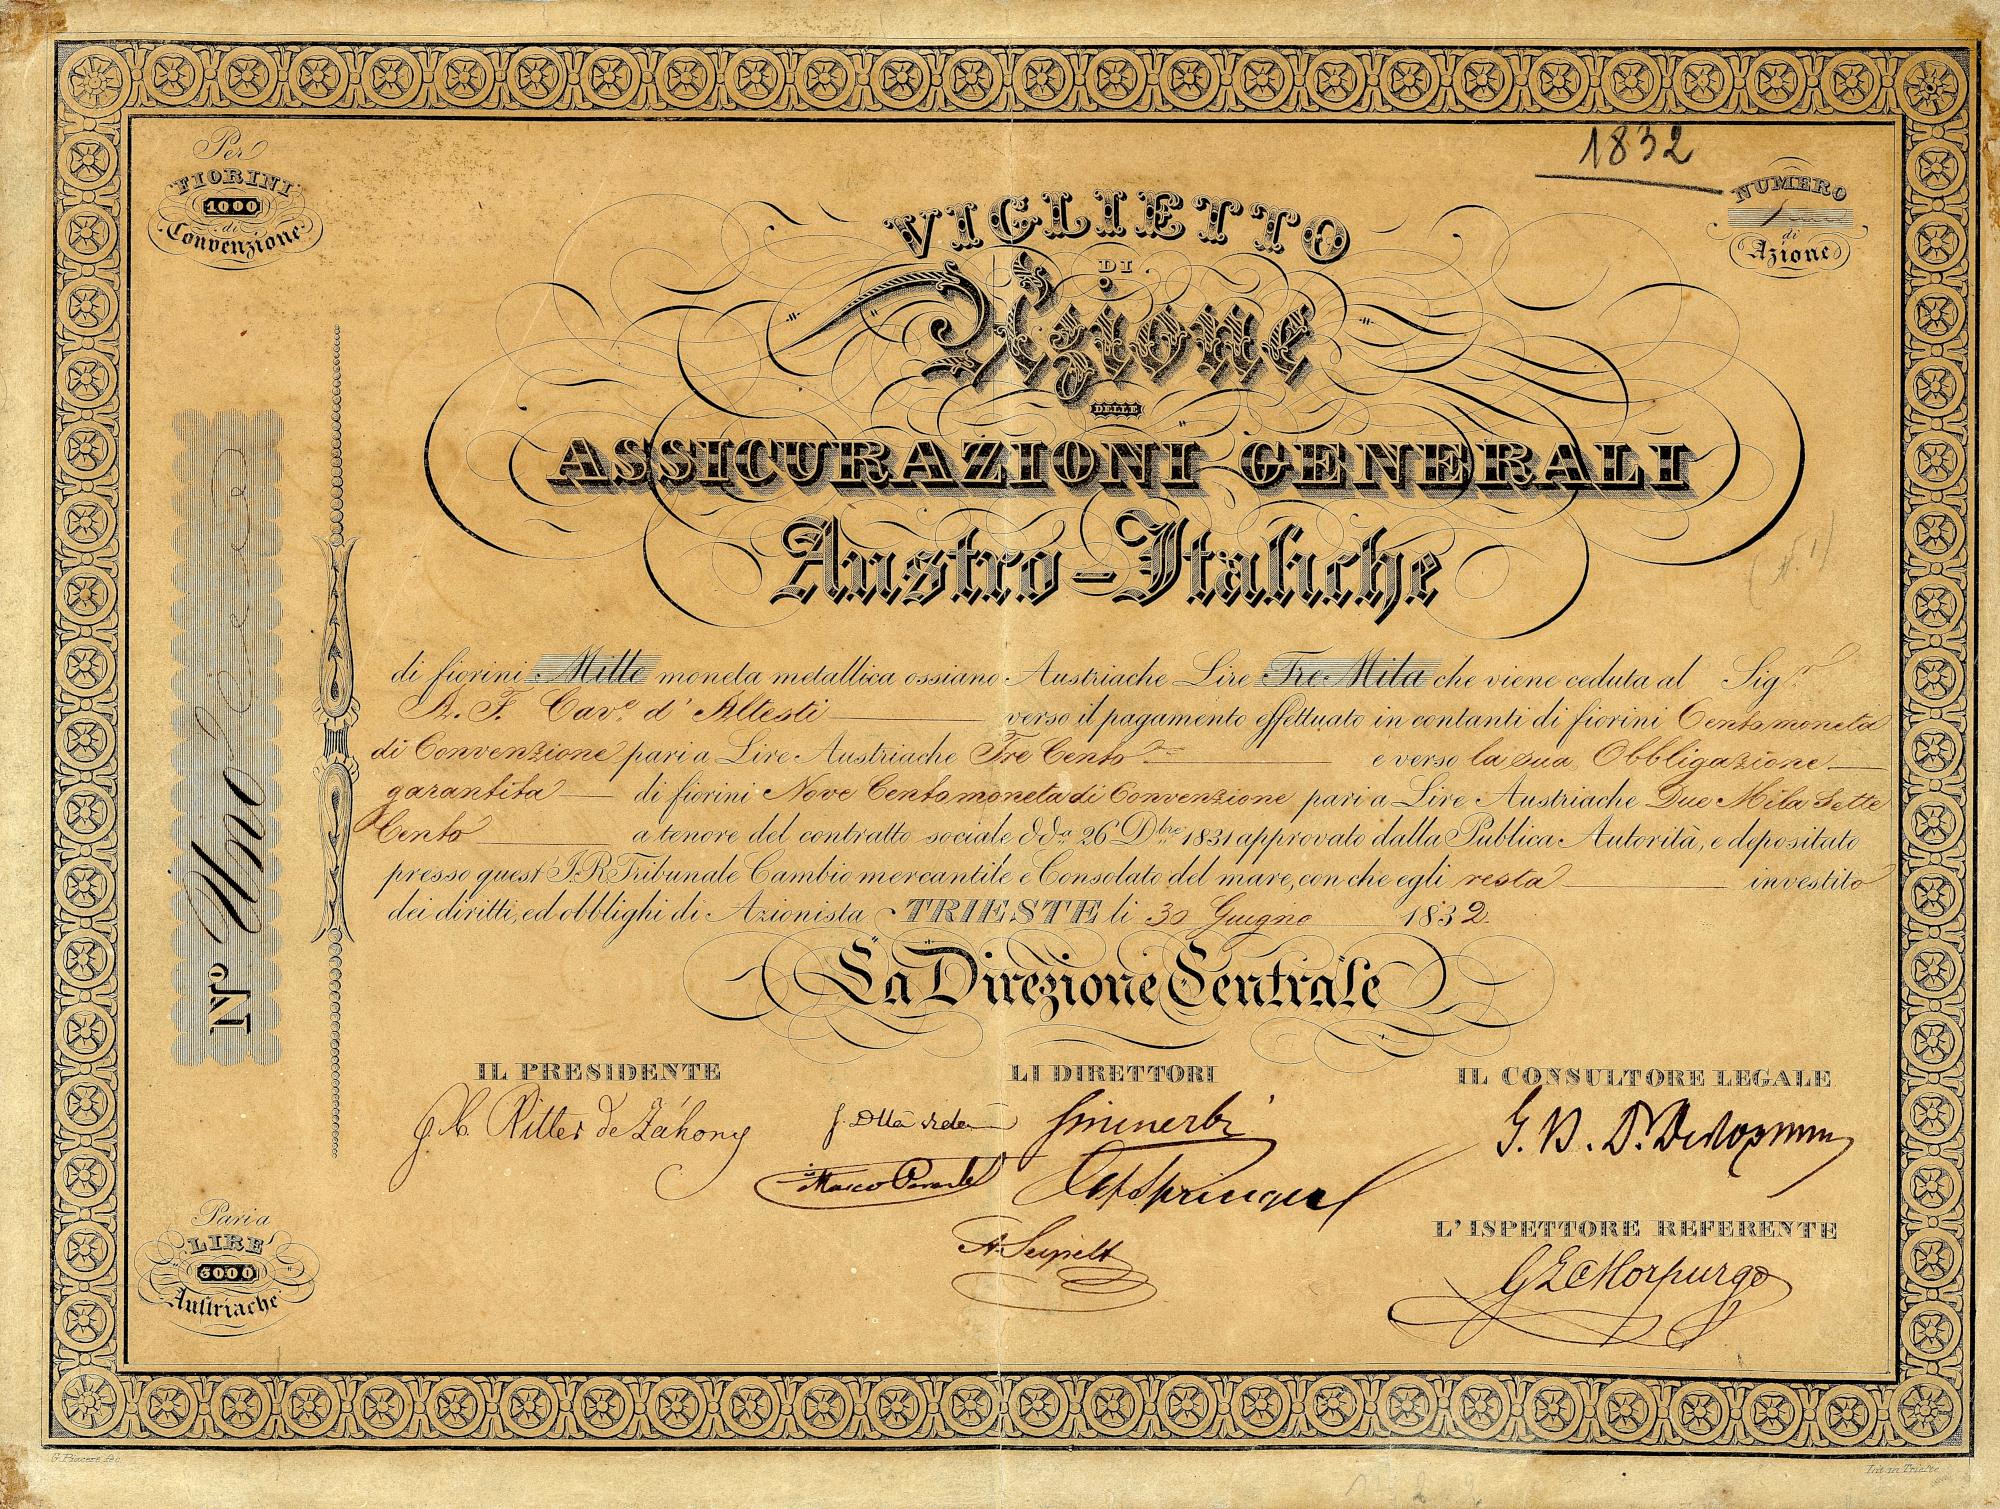 Per
FIORINI
1000
di
Convenzione
1832
NUMERO
1
di
Azione
VIGLIETTO
DI
Azione
DELLE
ASSICURAZIONI GENERALI
Austro-Italiche
(N. 1)
di fiorini Mille moneta metallica ossiano Austriache Lire Tre Mila che viene ceduta al Sigr.
A. F. Cave. d'Altesti verso il pagamento effettuato in contanti di fiorini Cento moneta
di Convenzione pari a Lire Austriache Tre Cento e verso la sua Obbligazione
garantita di fiorini Nove Cento moneta di Convenzione pari a Lire Austriache Due Mila Sette
Cento a tenore del contratto sociale dda. 26 Dbre 1831 approvato dalla Publica Autorità, e depositato
presso quest' I. R. Tribunale Cambio mercantile e Consolato del mare, con che egli resta investito
dei diritti, ed obblighi di Azionista TRIESTE li 30 Giugno 1832.
No. Uno
La Direzione Centrale
IL PRESIDENTE
LI DIRETTORI
IL CONSULTORE LEGALE
Ritter de Záhony
Marco Parente
L'ISPETTORE REFERENTE
Morpurgo
Pari a
LIRE
3000
Austriache